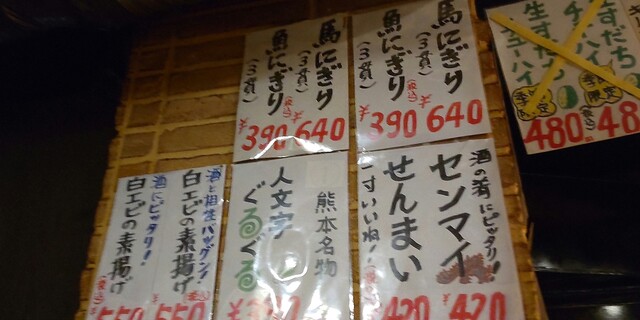 馬にぎり
(3貫)
¥640
魚にぎり
(3貫)
(税込)
¥390
馬にぎり
(3貫)
¥640
魚にぎり
(3貫)
(税込)
¥390
生すだち
チューハイ
季節限定
(税込)
480
480
酒の肴にピッタリ!!
センマイ
¥420
せんまい
一寸いいね!
420
熊本名物
人文字
ぐるぐる
酒と相性バッグン!
白エビの素揚げ
(税込)
¥550
酒にピッタリ!
白エビの素揚げ
(税込)
¥550